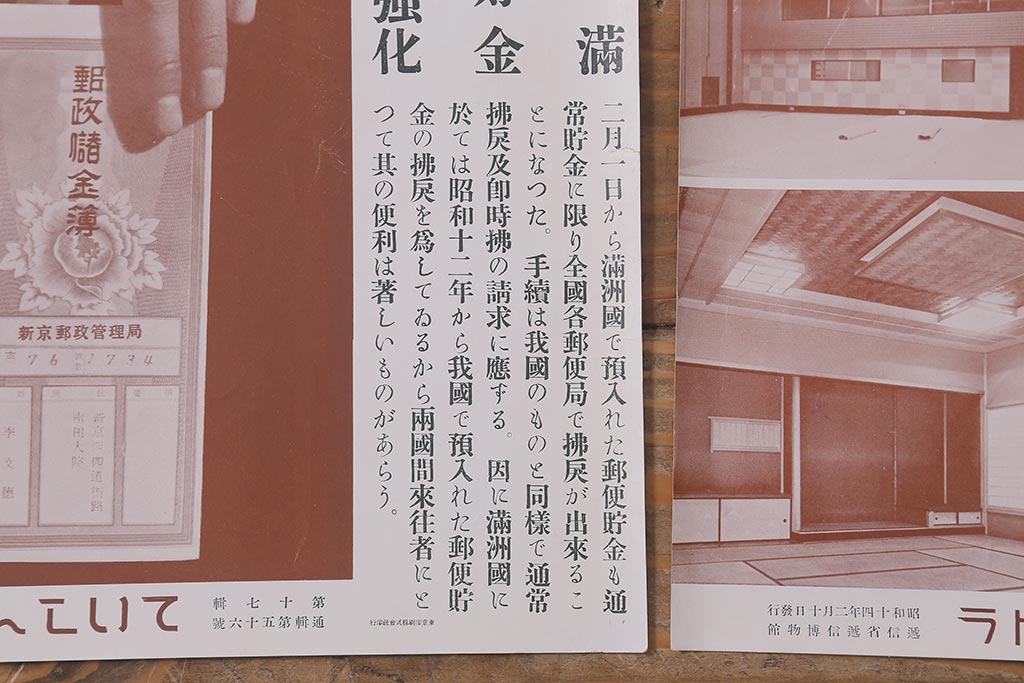 滿
金
強化
二月一日から滿洲國で預入れた郵便貯金も通
常貯金に限り全國各郵便局で拂戻が出來るこ
とになつた。手續は我國のものと同樣で通常
拂戻及卽時拂の請求に應ずる。因に滿洲國に
於ては昭和十二年から我國で預入れた郵便貯
金の拂戻を爲してゐるから兩國間來往者にと
つて其の便利は著しいものがあらう。
郵政儲金簿
新京郵政管理局
76
1734
李文德
ていこ
第十七輯
通輯第五十六號
東京印刷株式會社印行
昭和十四年二月十日發行
遞信省遞信博物館
ラト